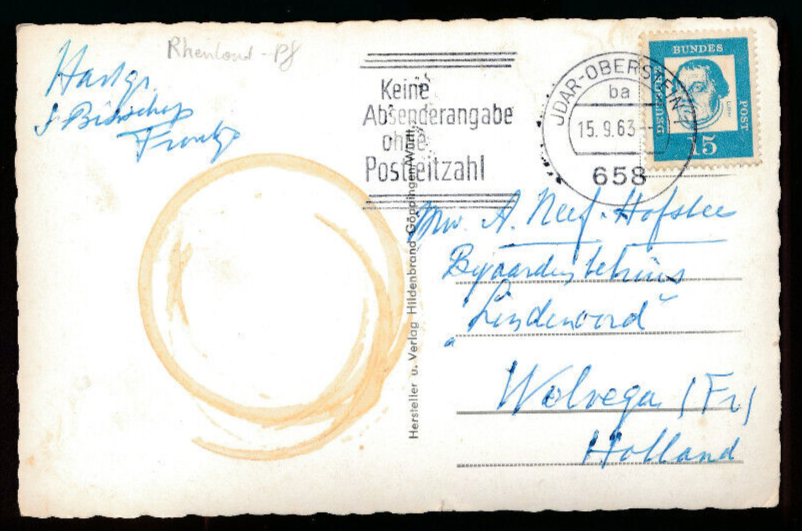 Rhenland - Pf
Hartgr
Frontje
Keine
Absenderangabe
ohne
Postleitzahl
IDAR-OBERSTEIN
ba
15.9.63
658
BUNDES
POST
15
Hersteller u. Verlag Hildenbrand Göppingen/Württ.
Mw. A. Neef-Hofstee
Bejaardentehuis
"Lindenoord"
Wolvega (Fr)
Holland